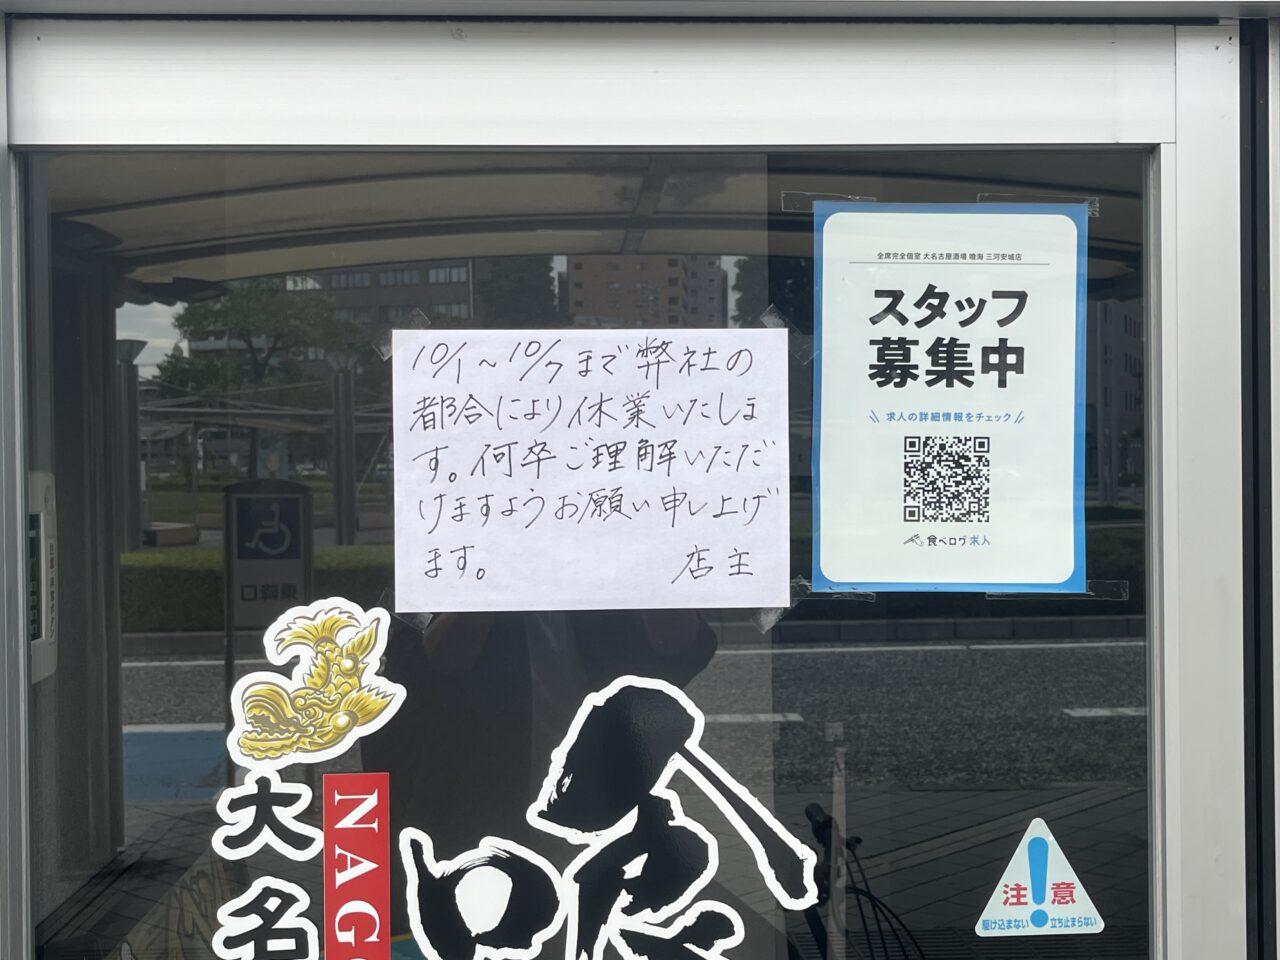 10/1～10/7まで弊社の
都合により休業いたしま
す。何卒ご理解いただ
けますようお願い申し上げ
ます。 店主
全席完全個室 大名古屋酒場 喰海 三河安城店
スタッフ
募集中
\\ 求人の詳細情報をチェック //
食べログ 求人
大名
NAG
注意
駆け込まない 立ち止まらない